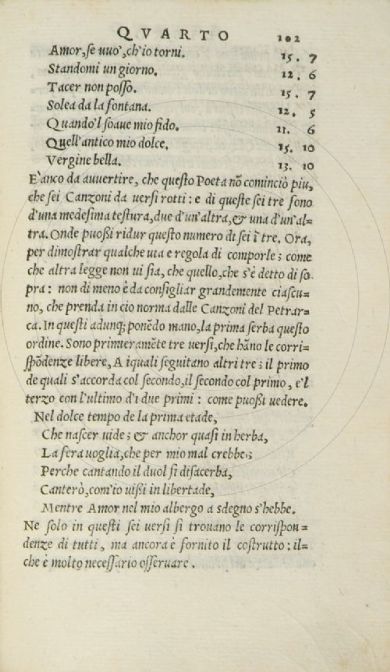 QVARTO 102
Amor, se uuo', ch'io torni. 15. 7
Standomi un giorno. 12. 6
Tacer non posso. 15. 7
Solea da la fontana. 12. 5
Quando'l soaue mio fido. 11. 6
Quell'antico mio dolce. 15. 10
Vergine bella. 13. 10
E' anco da auuertire, che questo Poeta nõ cominciò piu,
che sei Canzoni da uersi rotti: e di queste sei tre sono
d'una medesima testura, due d'un'altra, & una d'un'al=
tra. Onde puossi ridur questo numero di sei ĩ tre. Ora,
per dimostrar qualche uia e regola di comporle; come
che altra legge non ui sia, che quello, che s'è detto di so
pra: non di meno è da consigliar grandemente ciascu=
no, che prenda in cio norma dalle Canzoni del Petrar=
ca. In questi adunq; ponẽdo mano, la prima serba questo
ordine. Sono primieramẽte tre uersi, che hãno le corri=
spõdenze libere, A iquali seguitano altri tre: il primo
de quali s'accorda col secondo, il secondo col primo, e'l
terzo con l'ultimo d'i due primi: come puossi uedere.
Nel dolce tempo de la prima etade,
Che nascer uide; & anchor quasi in herba,
La fera uoglia, che per mio mal crebbe;
Perche cantando il duol si disacerba,
Canterò, com'io uißi in libertade,
Mentre Amor nel mio albergo a sdegno s'hebbe.
Ne solo in questi sei uersi si trouano le corrispon=
denze di tutti, ma ancora è fornito il costrutto: il=
che è molto necessario osseruare.